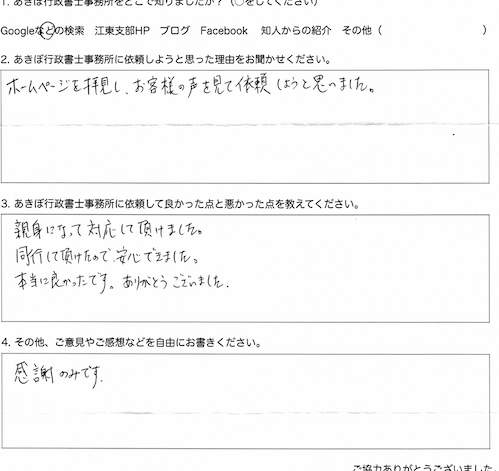 1. あきぼ行政書士事務所をどこで知りましたか？（○をしてください）
Googleなどの検索　江東支部HP　ブログ　Facebook　知人からの紹介　その他（　　　　　　　　）
2. あきぼ行政書士事務所に依頼しようと思った理由をお聞かせください。
ホームページを拝見し、お客様の声を見て依頼しようと思いました。
3. あきぼ行政書士事務所に依頼して良かった点と悪かった点を教えてください。
親身になって対応して頂けました。
同行して頂けたので、安心できました。
本当に良かったです。ありがとうございました.
4. その他、ご意見やご感想などを自由にお書きください。
感謝のみです.
ご協力ありがとうございました。